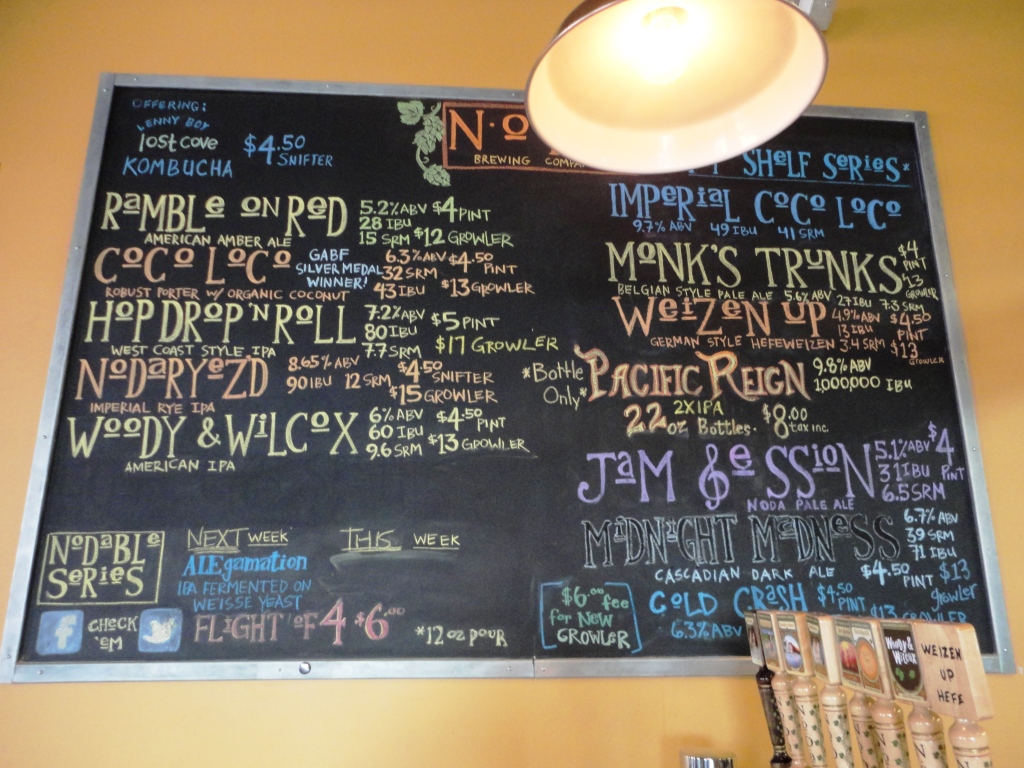 OFFERING:
LENNY BOY
lost cove
KOMBUCHA
$4.50
SNIFTER
N
BREWING
SHELF SERIES*
RAMBLE ON RED
AMERICAN AMBER ALE
5.2% ABV $4 PINT
28 IBU
15 SRM $12 GROWLER
COCO LOCO
ROBUST PORTER W/ ORGANIC COCONUT
GABF
SILVER MEDAL
WINNER!
6.3% ABV $4.50 PINT
32 SRM
43 IBU $13 GROWLER
HOP DROP 'N ROLL
WEST COAST STYLE IPA
7.2% ABV
80 IBU $5 PINT
7.7 SRM $17 GROWLER
NODARYEZD
IMPERIAL RYE IPA
8.65% ABV $4.50 SNIFTER
90 IBU 12 SRM
$15 GROWLER
WOODY & WILCOX
AMERICAN IPA
6% ABV $4.50 PINT
60 IBU
9.6 SRM $13 GROWLER
IMPERIAL COCO LOCO
9.7% ABV 49 IBU 41 SRM
MONK'S TRUNKS
BELGIAN STYLE PALE ALE 5.6% ABV 27 IBU 7.3 SRM
$4
PINT
$13
GROWLER
WEIZEN UP
GERMAN STYLE HEFEWEIZEN 3.4 SRM
4.9% ABV
13 IBU
$4.50
PINT
$13
Growler
*Bottle
Only*
PACIFIC REIGN
2XIPA
22oz Bottles. $8.00
tax inc.
9.8% ABV
1,000,000 IBU
JAM SESSION
NODA PALE ALE
5.1% ABV
31 IBU
6.5 SRM
$4
PINT
MIDNIGHT MADNESS
CASCADIAN DARK ALE
6.7% ABV
39 SRM
71 IBU
$4.50 PINT
$13
growler
COLD CRASH
6.3% ABV
$4.50
PINT
$13 GROWLER
NODABLE
SERIES
NEXT WEEK
ALEgamation
IPA FERMENTED ON
WEISSE YEAST
THIS WEEK
f
CHECK
'EM
FLIGHT OF 4 $6.00
*12 oz POUR
$6.00 fee
for New
GROWLER
Woody &
Wilcox
WEIZEN
UP
HEFE